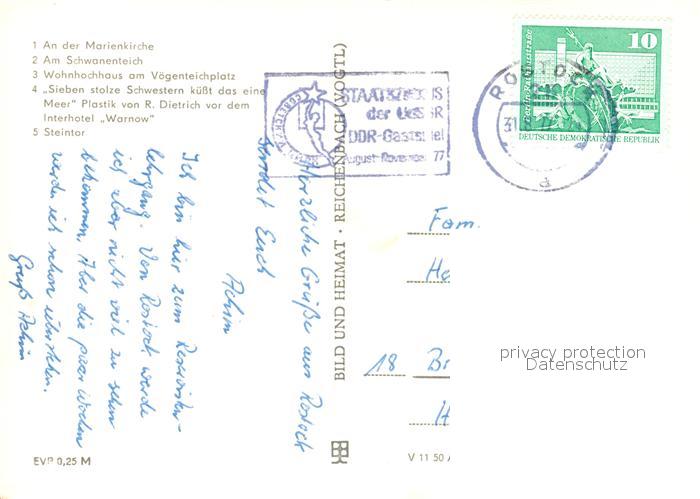 1 An der Marienkirche
2 Am Schwanenteich
3 Wohnhochhaus am Vögenteichplatz
4 „Sieben stolze Schwestern küßt das eine
Meer" Plastik von R. Dietrich vor dem
Interhotel „Warnow"
5 Steintor
STAATSZIRKUS
der UdSSR
DDR-Gastspiel
August-November 77
ROSTOCK
10
DEUTSCHE DEMOKRATISCHE REPUBLIK
Herzliche Grüße aus Rostock
sendet Euch
Achim
Ich bin hier zum Reservisten-
lehrgang. Von Rostock werde
ich aber nicht viel zu sehen
bekommen. Aber die paar Wochen
werde ich schon überstehen.
Gruß Achim
BILD UND HEIMAT · REICHENBACH (VOGTL)
Fam.
He
18 Br
H
privacy protection
Datenschutz
EVP 0,25 M
V 11 50